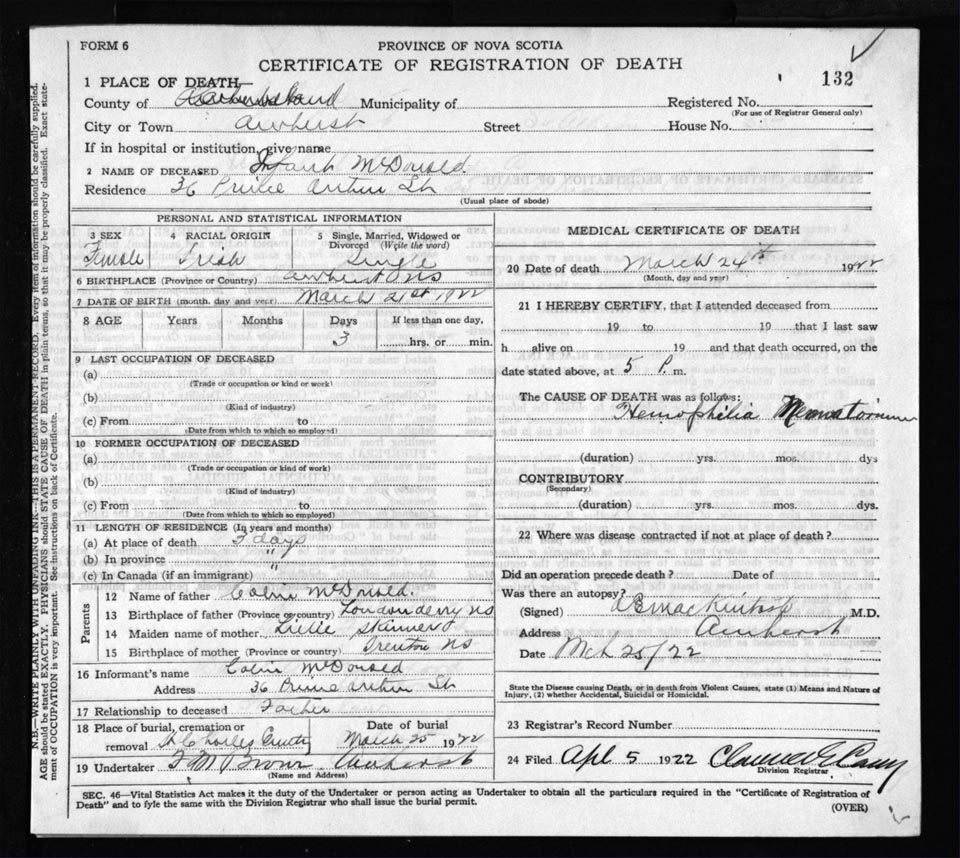 FORM 6
PROVINCE OF NOVA SCOTIA
CERTIFICATE OF REGISTRATION OF DEATH
132
1 PLACE OF DEATH—
County of Cumberland Municipality of Registered No.
(For use of Registrar General only)
City or Town Amherst Street House No.
If in hospital or institution, give name
2 NAME OF DECEASED Infant McDonald
Residence 36 Prince Arthur St
(Usual place of abode)
PERSONAL AND STATISTICAL INFORMATION
3 SEX 4 RACIAL ORIGIN 5 Single, Married, Widowed or Divorced (Write the word)
Female Irish Single
6 BIRTHPLACE (Province or Country) Amherst NS
7 DATE OF BIRTH (month, day and year) March 21st 1922
8 AGE Years Months Days If less than one day,
3 hrs. or min.
9 LAST OCCUPATION OF DECEASED
(a)
(Trade or occupation or kind or work)
(b)
(Kind of industry)
(c) From to
(Date from which to which so employed)
10 FORMER OCCUPATION OF DECEASED
(a)
(Trade or occupation or kind of work)
(b)
(Kind of industry)
(c) From to
(Date from which to which so employed)
11 LENGTH OF RESIDENCE (In years and months)
(a) At place of death 3 days
(b) In province "
(c) In Canada (if an immigrant) "
Parents
12 Name of father Colin McDonald.
13 Birthplace of father (Province or country) Londonderry NS
14 Maiden name of mother Skinner
15 Birthplace of mother (Province or country) Trenton NS
16 Informant's name Colin McDonald
Address 36 Prince Arthur St
17 Relationship to deceased Father
18 Place of burial, cremation or removal St Charles Date of burial March 25 1922
19 Undertaker F M Brown Amherst
(Name and Address)
MEDICAL CERTIFICATE OF DEATH
20 Date of death March 24th 1922
(Month, day and year)
21 I HEREBY CERTIFY, that I attended deceased from
19 to 19 that I last saw
h alive on 19 and that death occurred, on the
date stated above, at 5 P. m.
The CAUSE OF DEATH was as follows:
Hemophilia Neonatorum
(duration) yrs. mos. dys
CONTRIBUTORY
(Secondary)
(duration) yrs. mos. dys.
22 Where was disease contracted if not at place of death?
Did an operation precede death? Date of
Was there an autopsy?
(Signed) MacKintosh M.D.
Address Amherst
Date Mch 25/22
State the Disease causing Death, or in death from Violent Causes, state (1) Means and Nature of Injury, (2) whether Accidental, Suicidal or Homicidal.
23 Registrar's Record Number
24 Filed Apl 5 1922
Division Registrar
SEC. 46—Vital Statistics Act makes it the duty of the Undertaker or person acting as Undertaker to obtain all the particulars required in the "Certificate of Registration of
Death" and to fyle the same with the Division Registrar who shall issue the burial permit.
(OVER)
N.B.—WRITE PLAINLY WITH UNFADING INK—THIS IS A PERMANENT RECORD. Every item of information should be carefully supplied.
AGE should be stated EXACTLY. PHYSICIANS should STATE CAUSE OF DEATH in plain terms, so that it may be properly classified. Exact state-
ment of OCCUPATION is very important. See instructions on back of Certificate.